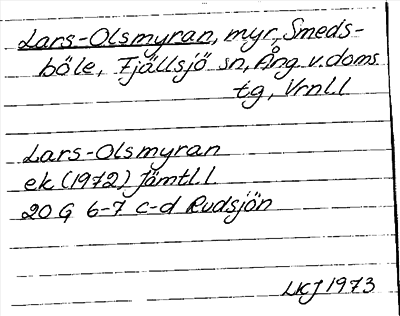 Lars-Olsmyran, myr, Smeds-
böle, Fjällsjö sn, Ång. v. doms
tg, Vrnll
Lars-Olsmyran
ek (1972) Jämtl. l
20 G 6-7 c-d Rudsjön
LKJ 1973